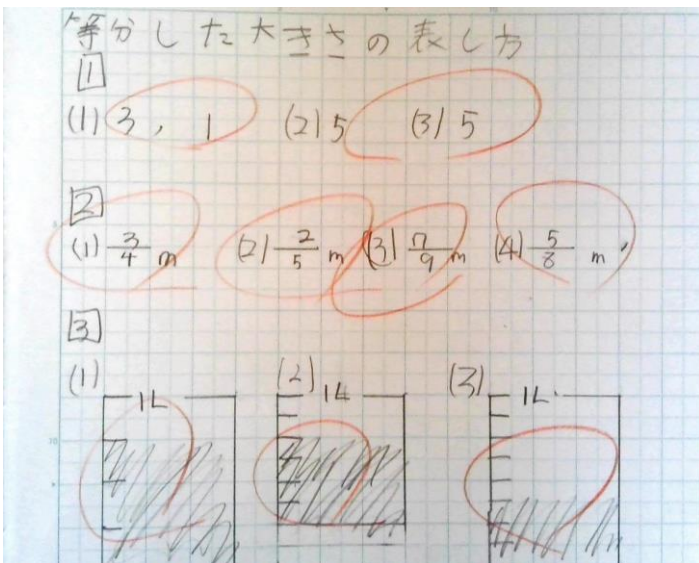 等分した大きさの表し方
1
(1) 3, 1 (2) 5 (3) 5
2
(1) 3/4 m (2) 2/5 m (3) 7/9 m (4) 5/8 m
3
(1) (2) (3)
1L 1L 1L